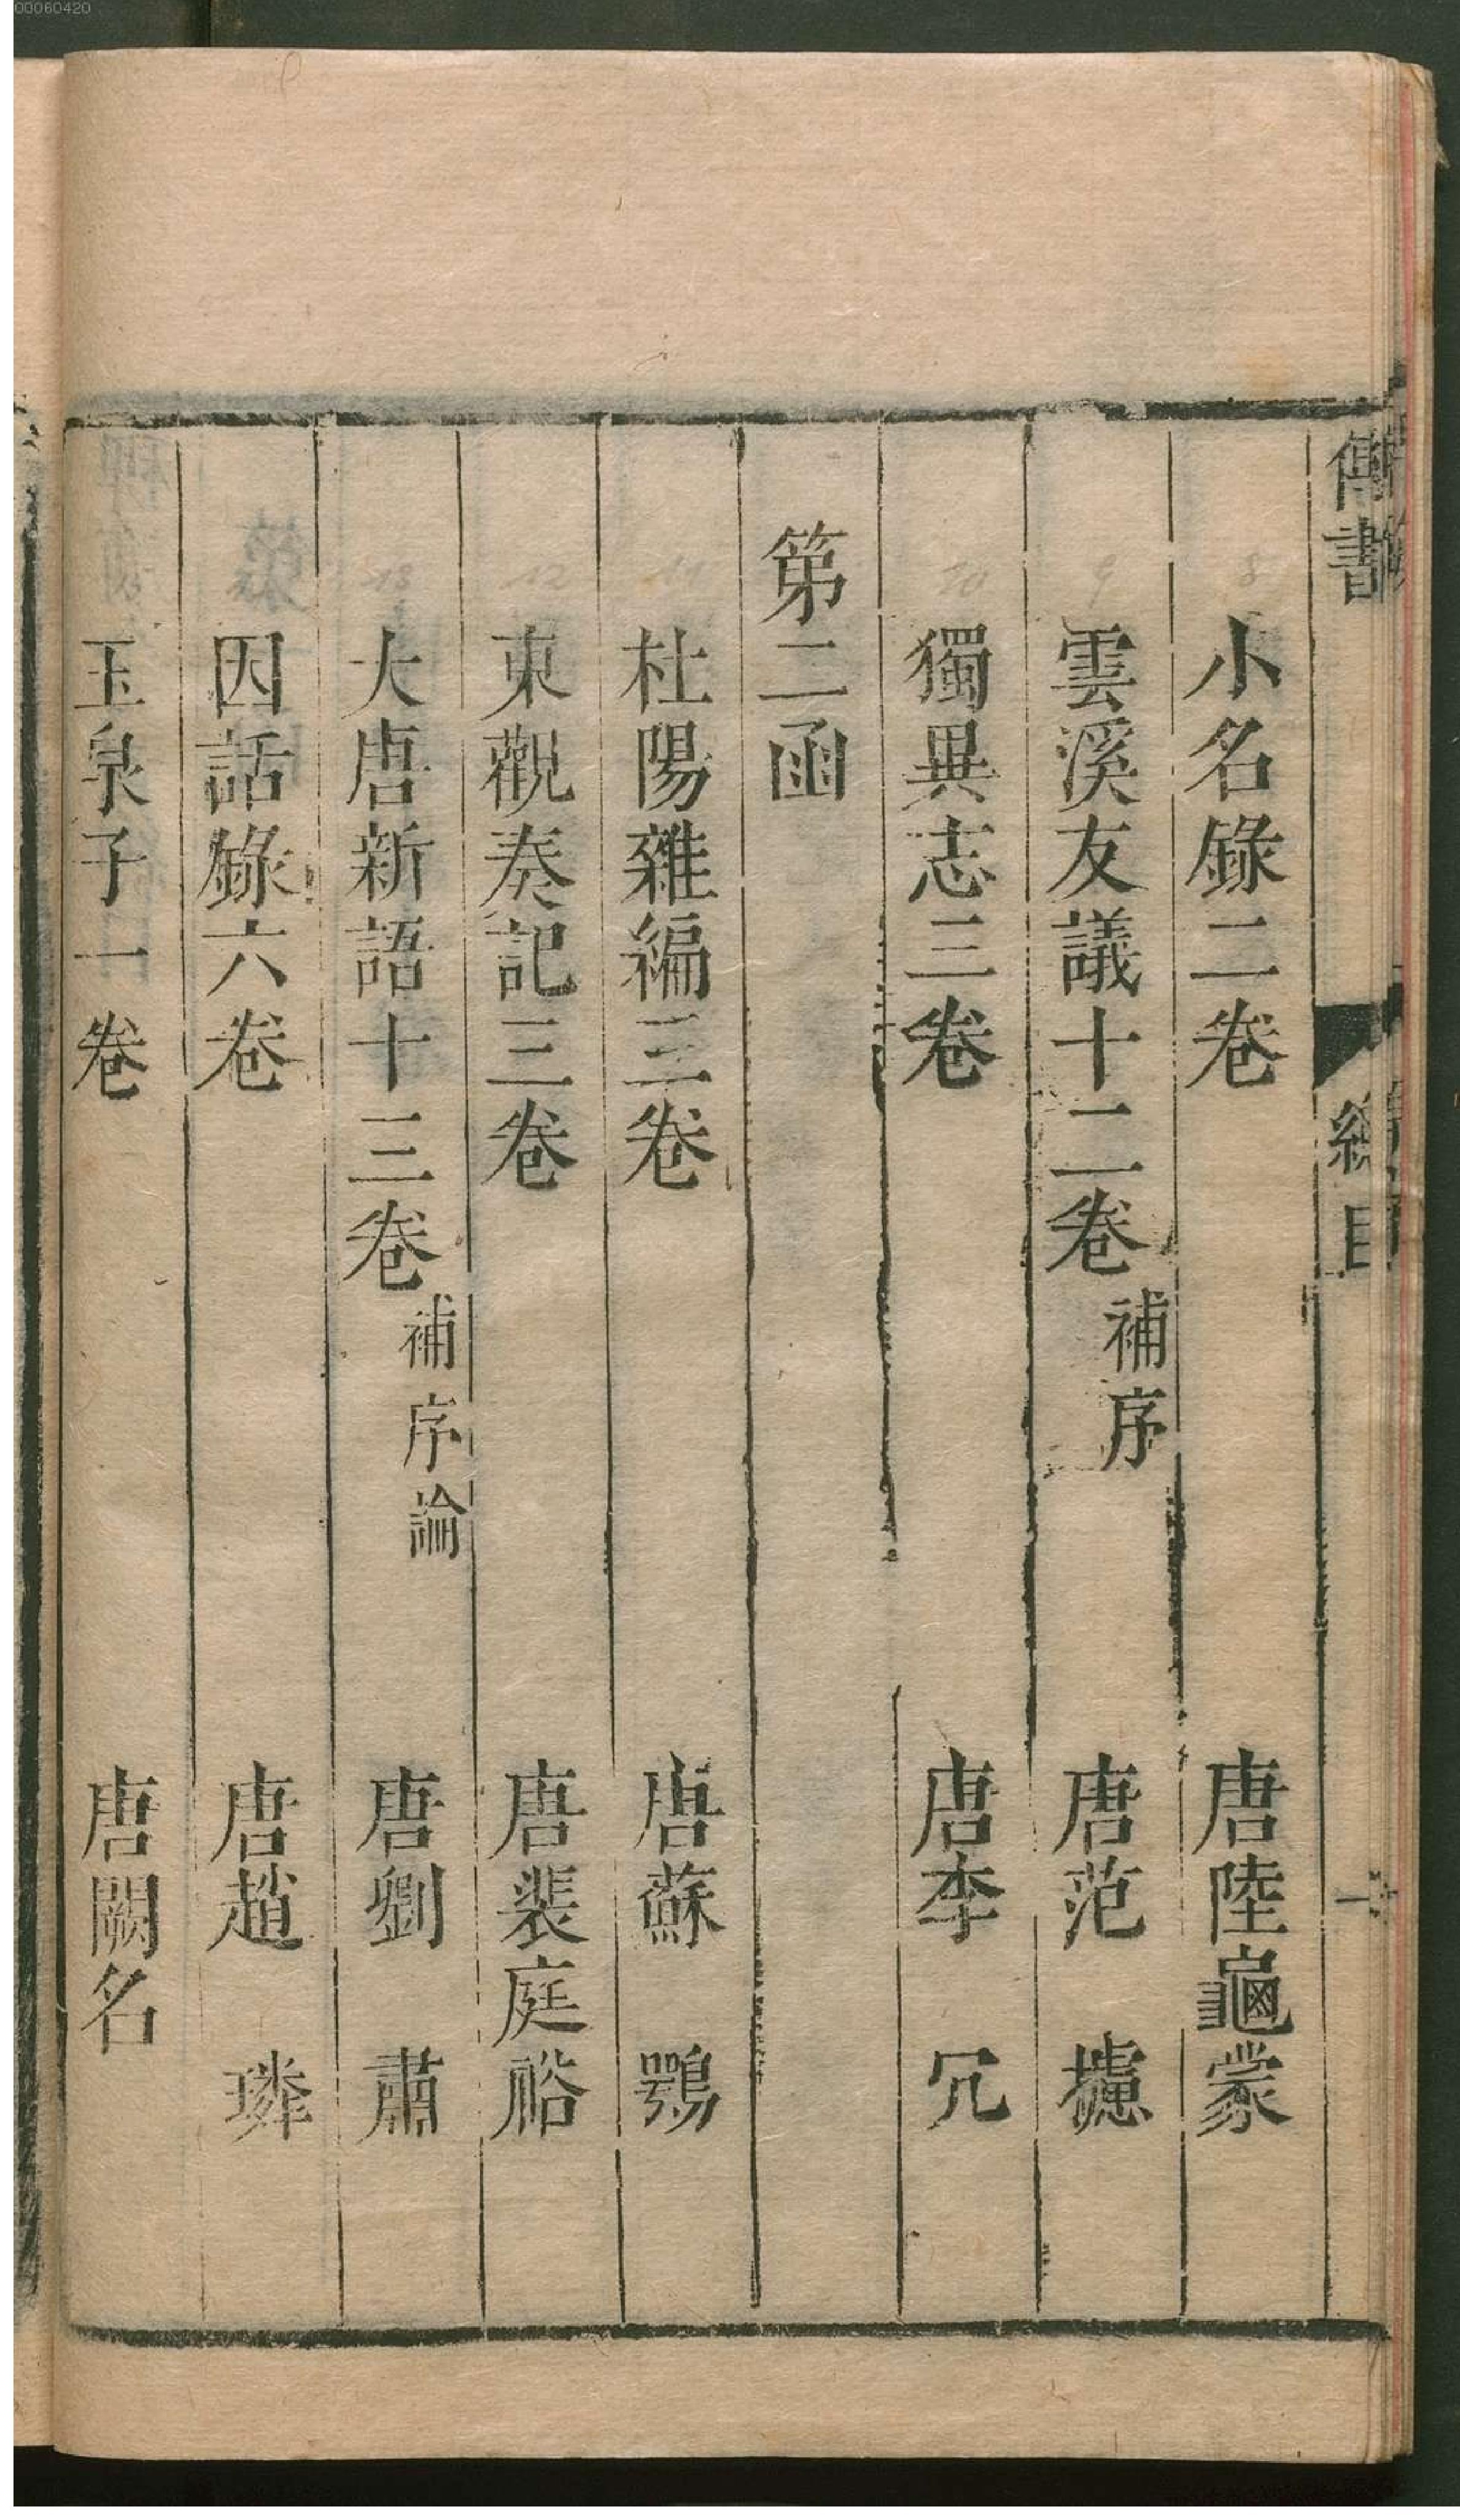 小名錄二卷 唐陸龜蒙
雲溪友議十二卷 補序 唐范攄
獨異志三卷 唐李冗
第二函
杜陽雜編三卷 唐蘇鶚
東觀奏記三卷 唐裴庭裕
大唐新語十三卷 補序論 唐劉肅
因話錄六卷 唐趙璘
玉泉子一卷 唐闕名
總目
00060420